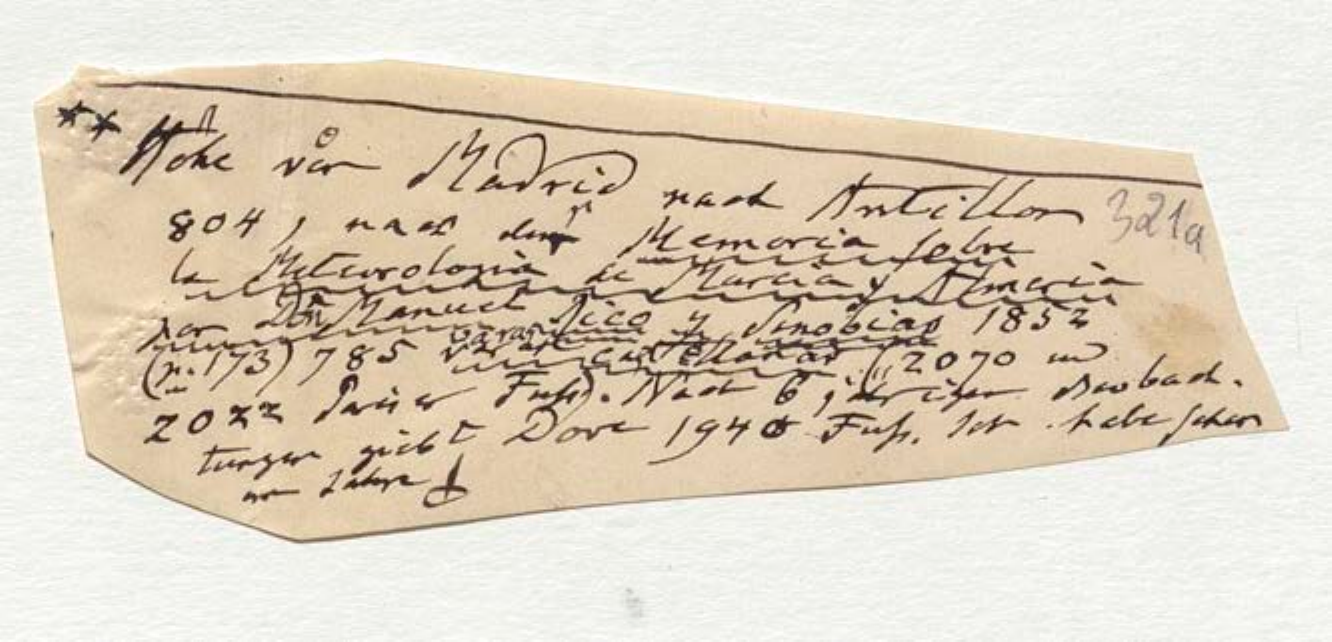 ** Höhe von Madrid nach Antillon 321a
804, nach dem Memoria sobre
la Meteorologia de Murcia y Almeria
por Dn Manuel Rico y Sinobias 1852
(p. 173) 785 varas castellanas (2070 und
2022 Pariser Fuß). Nach 6 jährigen Beobach-
tungen giebt Dove 1940 Fuß. Ich habe schon
im Jahre